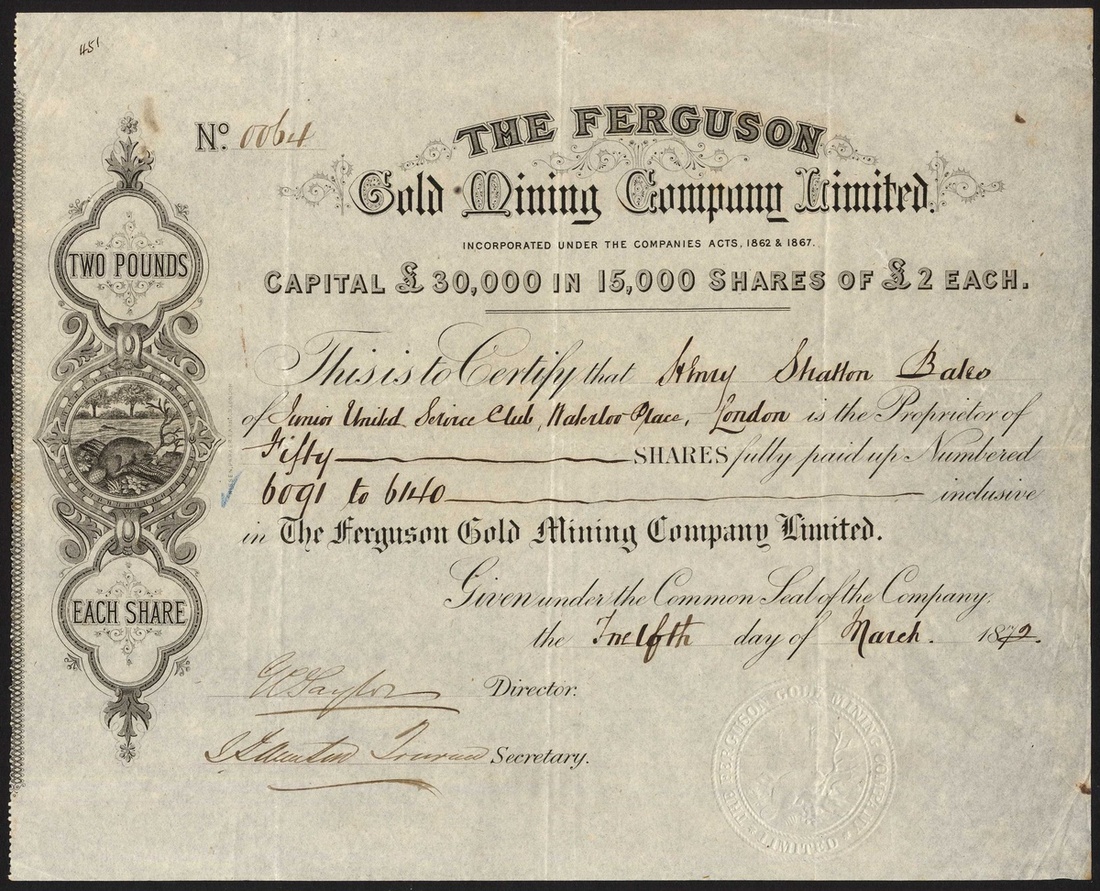 451
No. 0064
THE FERGUSON
Gold Mining Company Limited.
INCORPORATED UNDER THE COMPANIES ACTS, 1862 & 1867.
CAPITAL £30,000 IN 15,000 SHARES OF £2 EACH.
TWO POUNDS
This is to Certify that Henry Stratton Bates
of Junior United Service Club, Waterloo Place, London is the Proprietor of
Fifty SHARES fully paid up Numbered
6091 to 6140 inclusive
in The Ferguson Gold Mining Company Limited.
EACH SHARE
Given under the Common Seal of the Company,
the Twelfth day of March. 1872.
Taylor Director.
Secretary.
THE FERGUSON GOLD MINING COMPANY LIMITED